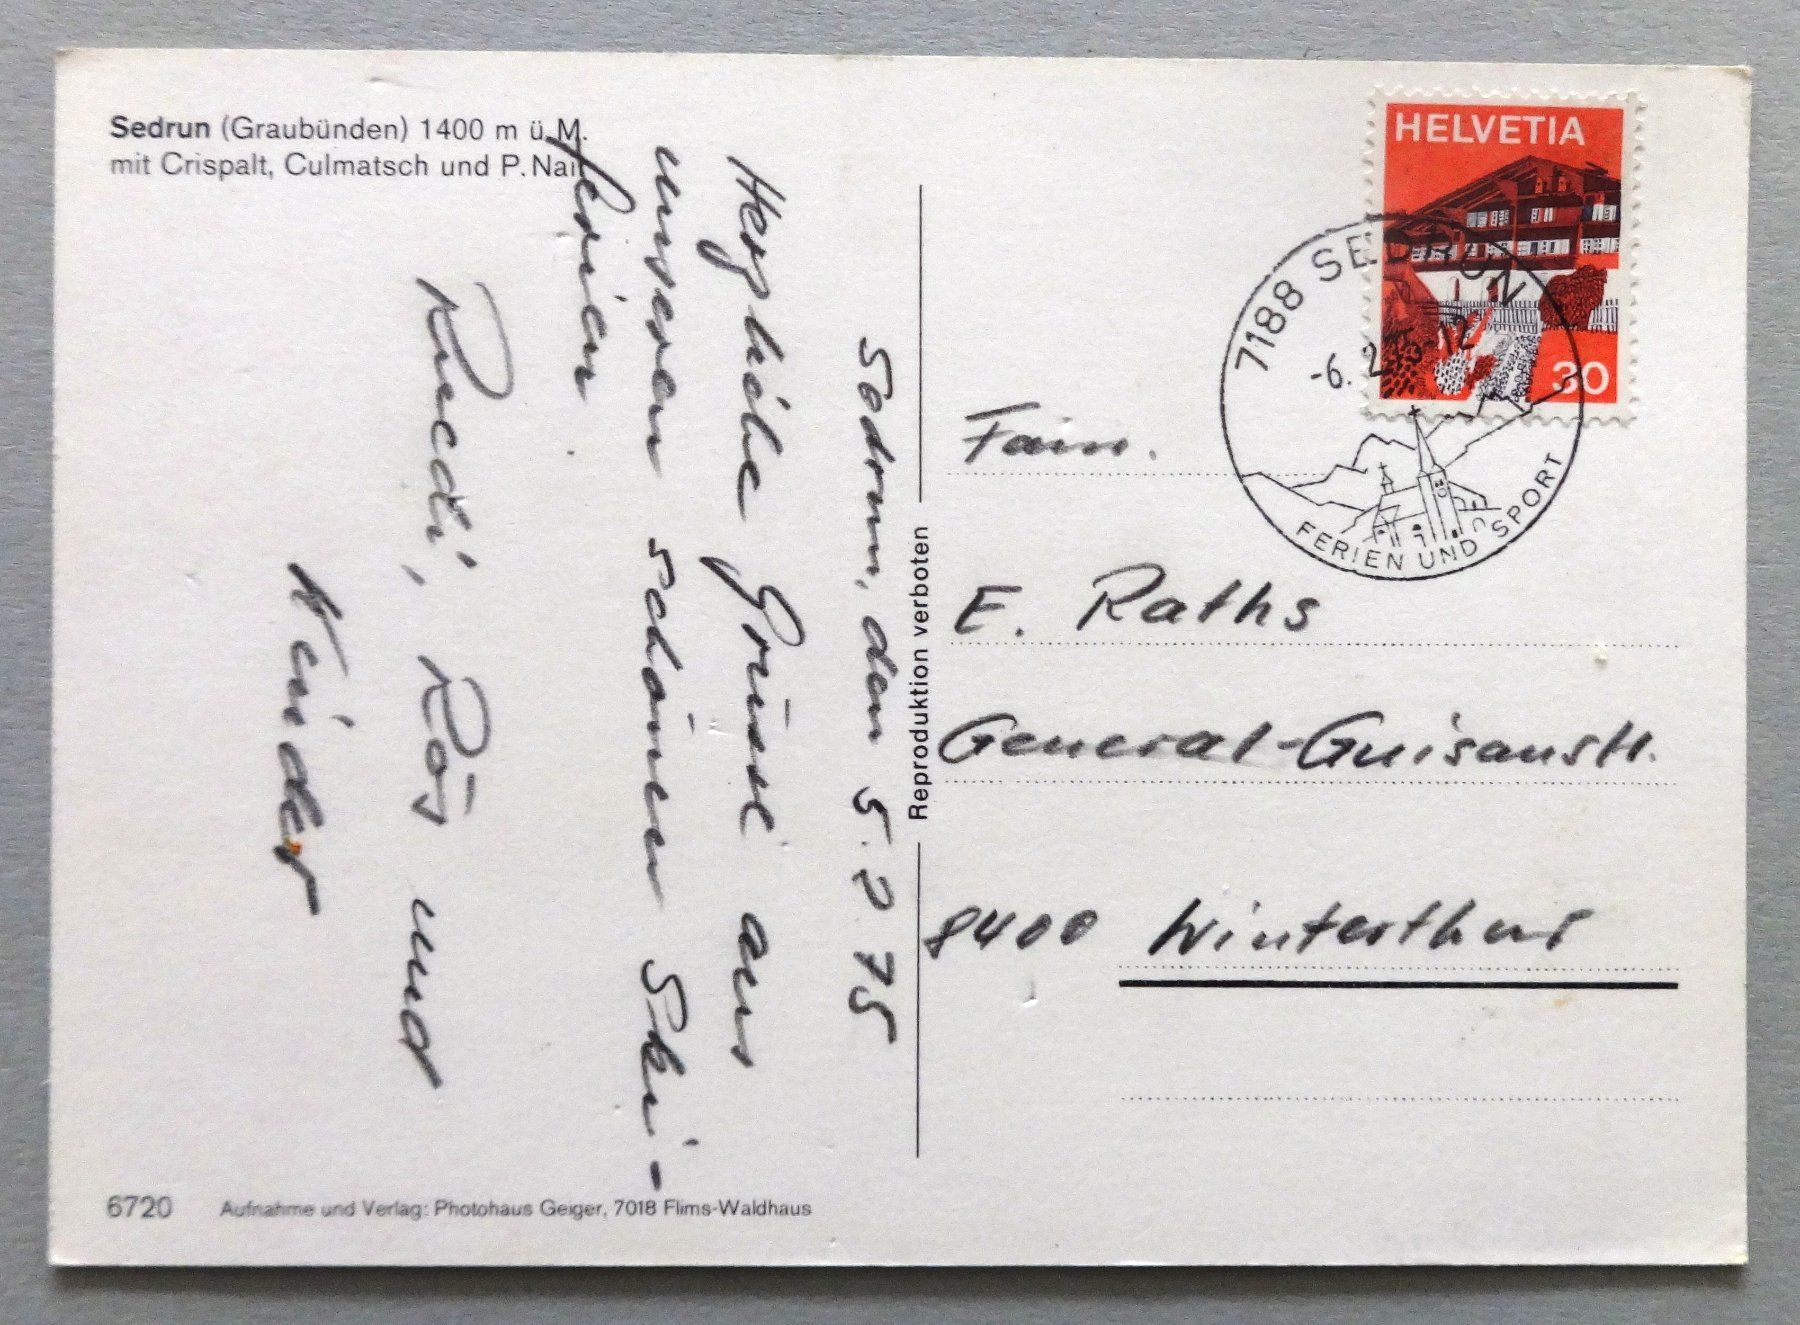 Sedrun (Graubünden) 1400 m ü. M.
mit Crispalt, Culmatsch und P. Nair
Sedrun, den 5. 2 75
Herzliche Grüsse aus
unseren schönen Ski-
ferien
Ruedi, Rös und
Kinder
6720
Aufnahme und Verlag: Photohaus Geiger, 7018 Flims-Waldhaus
Reproduktion verboten
HELVETIA
30
7188 SEDRUN
-6. 2. 75-12
FERIEN UND SPORT
Fam.
E. Raths
General-Guisanstr.
8400 Winterthur